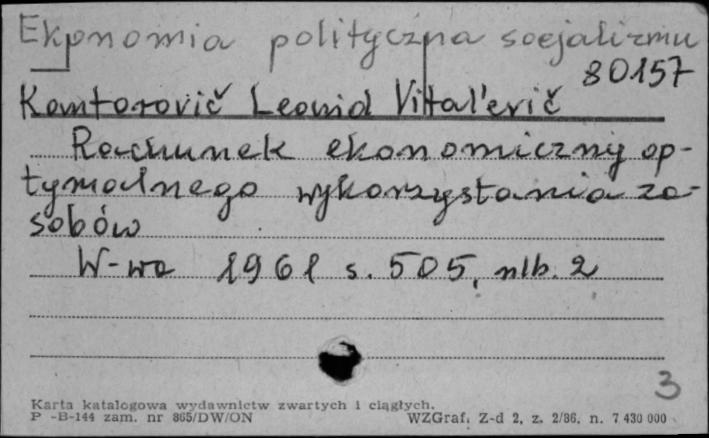 Ekonomia polityczna socjalizmu
80157
Kantorovič Leonid Vital'evič
Rachunek ekonomiczny op-
tymalnego wykorzystania za-
sobów
W-wa 1961 s. 505, nlb. 2
3
Karta katalogowa wydawnictw zwartych i ciągłych.
P -B-144 zam. nr 865/DW/ON WZGraf. Z-d 2, z. 2/86, n. 7 430 000